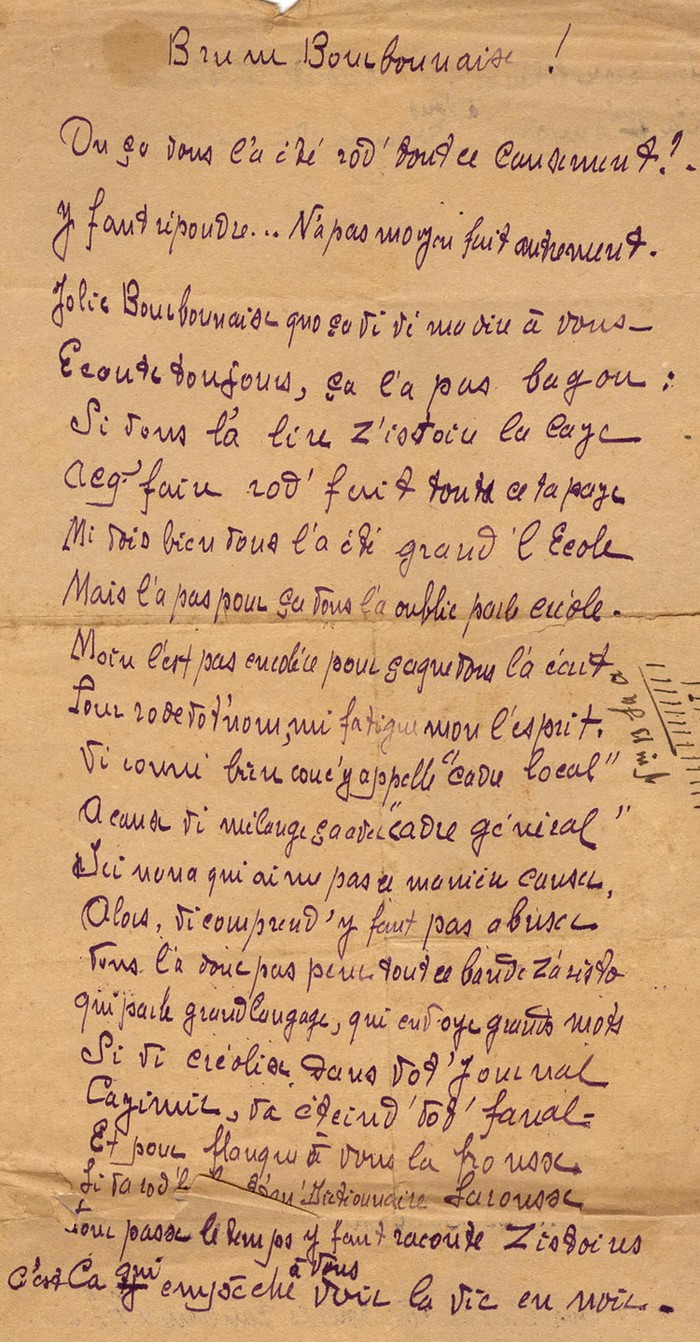 Brune Bourbonnaise !
Ou ça vous l'a été rod' tout ce causement ? .
Y faut répondre... N'a pas moyen fait autrement.
Jolie Bourbonnaise quo ça vi vé ma dire à vous _
Ecoute toujours, ça l'a pas bagou :
Si vous l'a lire z'istoire la Caye
Acq' faire rod' fait toute ce tapaze
Mi vois bien vous l'a été grand l'Ecole
Mais l'a pas pour ça vous l'a oublié parle créole.
Moin l'est pas encolère pour ça que vous l'a écrit
Pour rode vot' nom, mi fatigue mon l'esprit.
Vi conni bien couc' y appelle "cadre local"
A cause vi mélange ça avec "cadre général"
Ici nana qui aime pas ce manière causer,
Alors, vi comprend' y faut pas abuser
Vous l'a donc pas peur tout ce bande zaristo
qui parle grand langage, qui envoye grands mots
Si vi créolise dans vot' Journal
Cazimir, va éteind' vot' fanal =
Et pour flanque à vous la frousse
Li va rod' Dictionnaire Larousse
Pour passe le temps y faut raconte Zistoires
C'est Ca qui empêche à vous voir la vie en noir. _